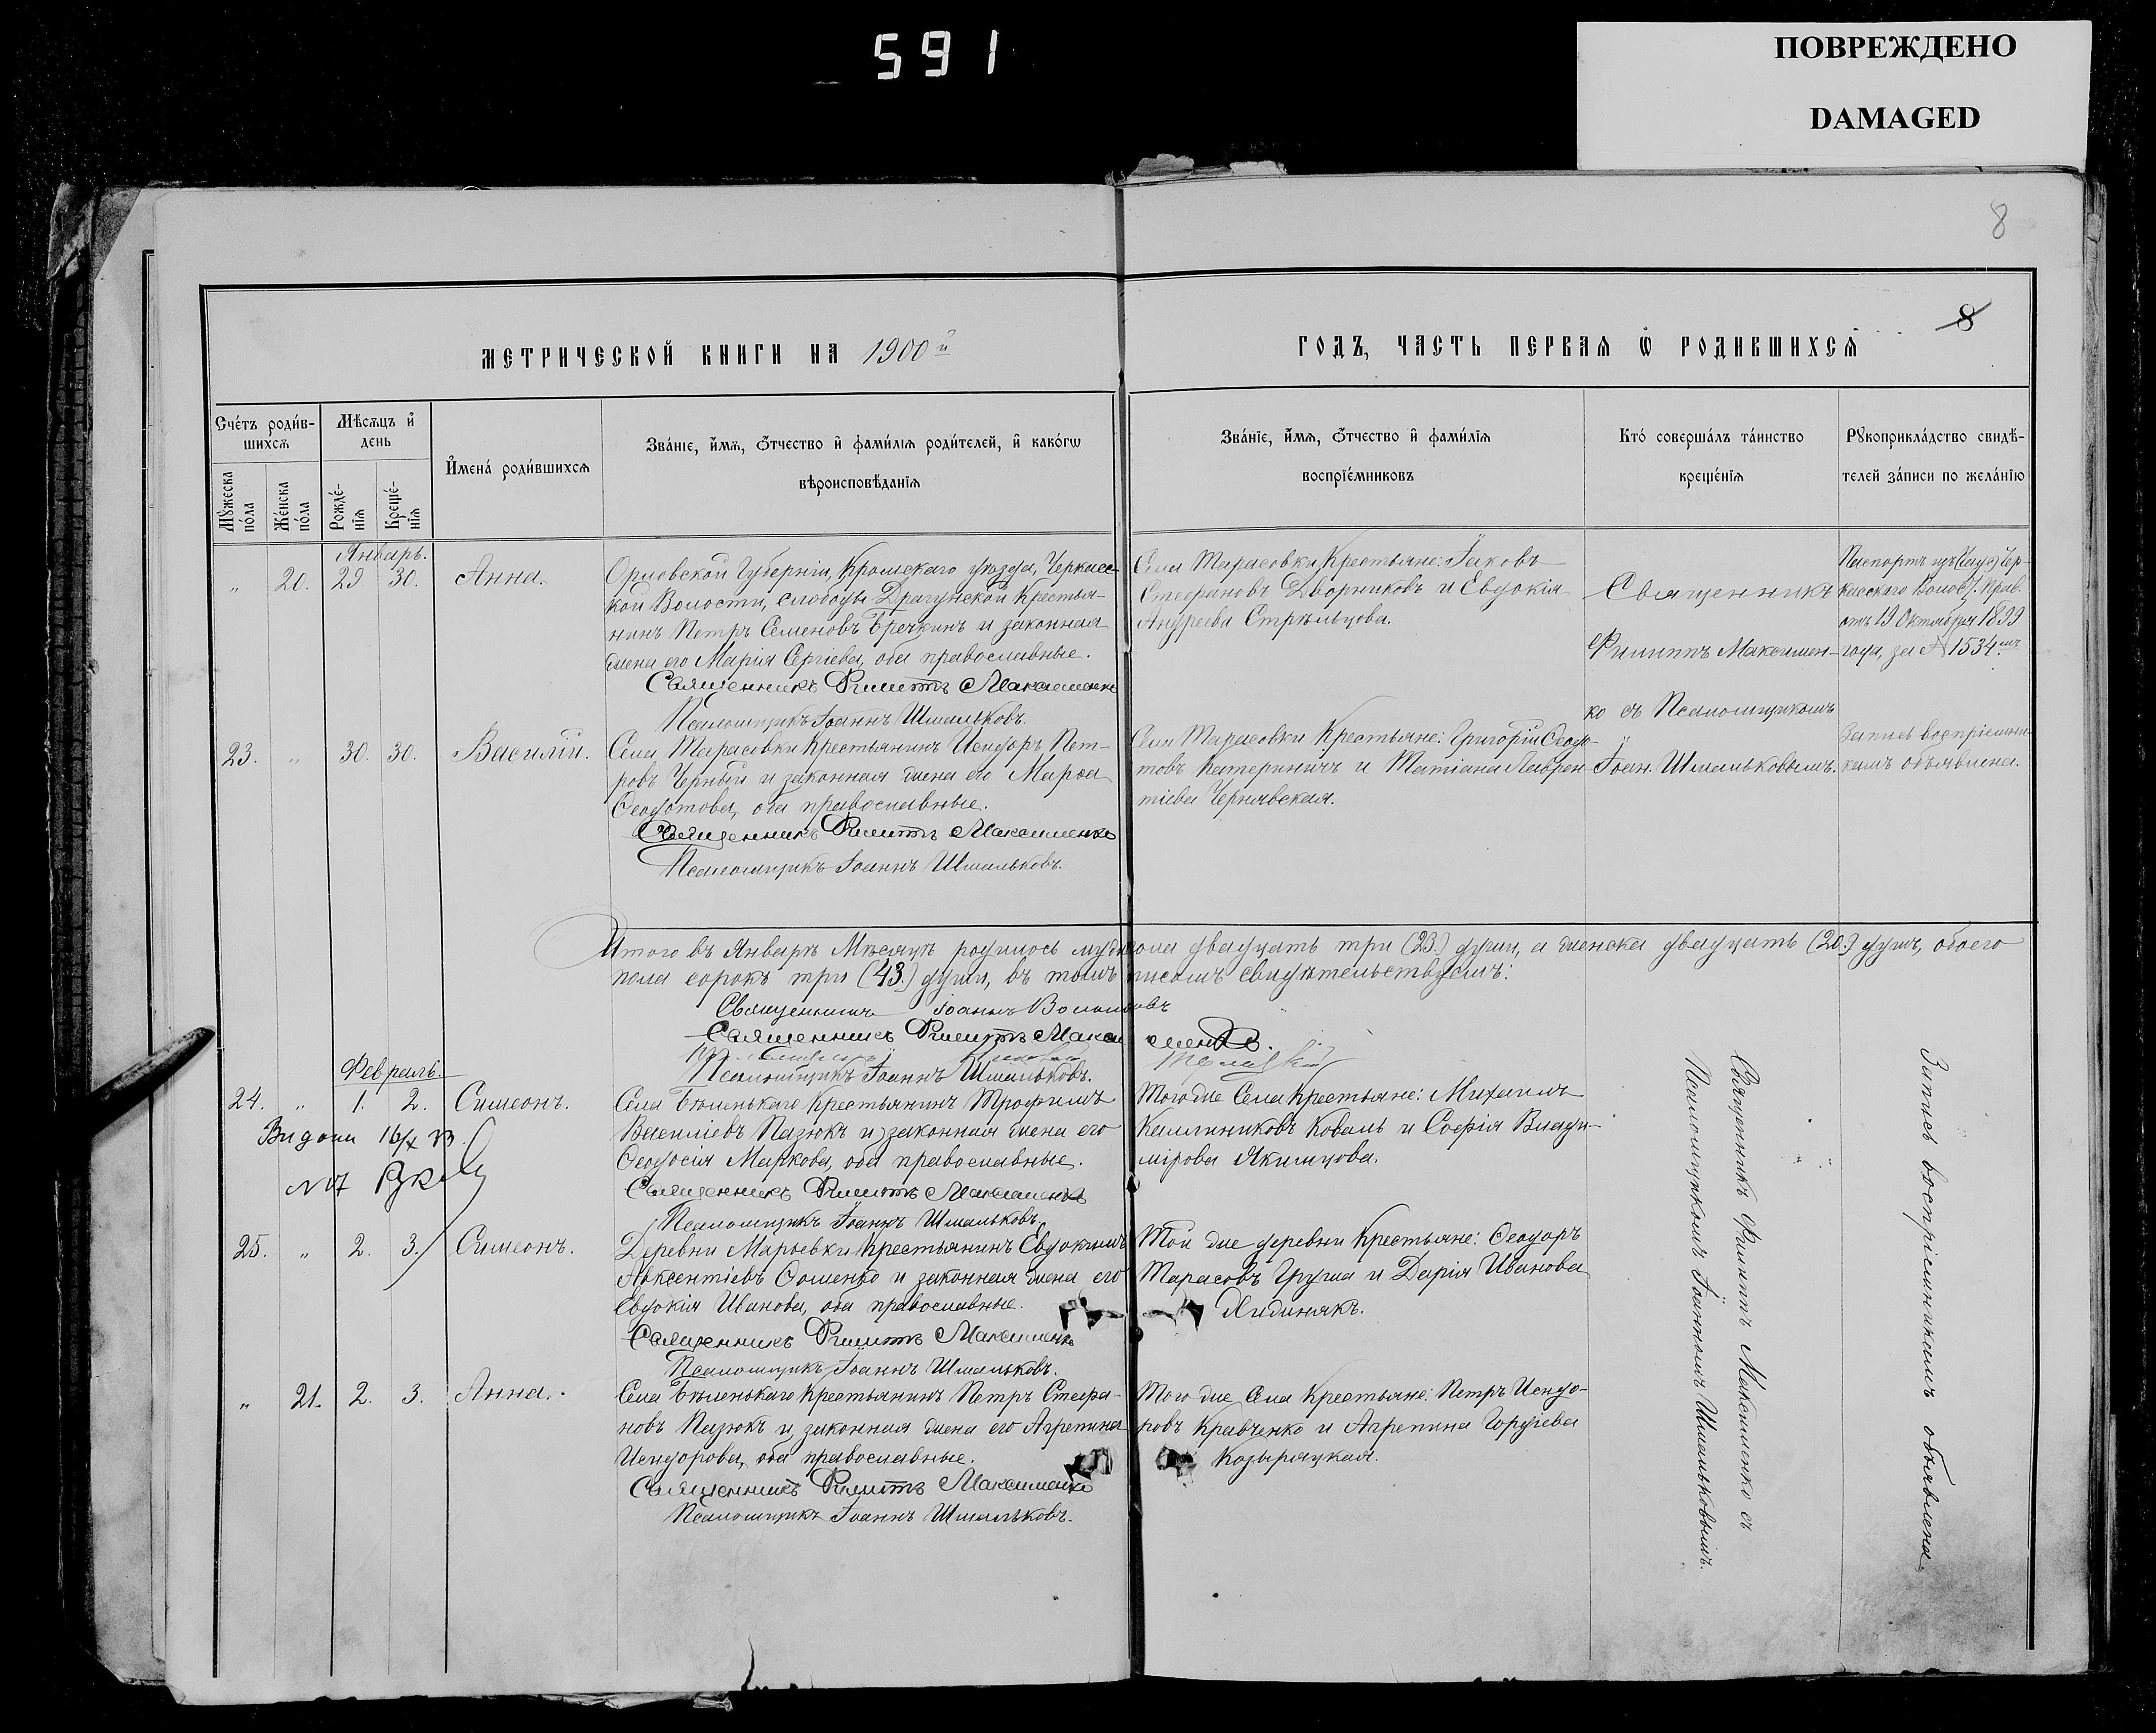 591
ПОВРЕЖДЕНО
DAMAGED
8
8
МЕТРИЧЕСКОЙ КНИГИ НА 1900й
ГОДЪ, ЧАСТЬ ПЕРВАЯ Ѡ РОДИВШИХСЯ
Счéтъ родúв-
шихсѧ
Мѣсѧцъ и
день
Имена́ роди́вшихсѧ
Зва́нїе, и́мѧ, ѻ́тчество и фами́лїѧ роди́телей, и како́гѡ
вѣроисповѣ́данїѧ
Зва́нїе, и́мѧ, ѻ́тчество и фами́лїѧ
воспрїе́мниковъ
Кто́ соверша́лъ та́инство
креще́нїѧ
Рꙋкоприкла́дство свидѣ́-
телей за́писи по жела́нїю
Мꙋ́жеска
по́ла
Же́нска
по́ла
Рожде́-
нїѧ
Креще́-
нїѧ
Январь.
„ 20. 29 30. Анна.
Орловской Губерніи, Кромскаго уѣзда, Черкасс-
кой Волости, слободы Драгунской Крестья-
нинъ Петръ Семеновъ Бречкинъ и законная
жена его Марія Сергіева, оба православные.
Священникъ Филиппъ Максименко
Псаломщикъ Іоаннъ Шмальковъ.
Села Тарасовки Крестьяне: Іаковъ
Стефановъ Дворниковъ и Евдокія
Андреева Стрѣльцова.
Священникъ
Филиппъ Максимен-
ко съ Псаломщикомъ
Іоан. Шмальковымъ.
Паспортъ изъ Чер-
касского Волос. Прав.
отъ 19 Октября 1899
года, за № 1534
23. „ 30. 30. Василій.
Села Тарасовки Крестьянинъ Исидоръ Пет-
ровъ Черный и законная жена его Марѳа
Ѳеодотова, оба православные.
Священникъ Филиппъ Максименко
Псаломщикъ Іоаннъ Шмальковъ.
Села Тарасовки Крестьяне: Григорій Ѳедо-
товъ Катериничъ и Татіана Лаврен-
тіева Чернявская.
Запись воспріемни-
камъ объявлена.
Итого въ Январѣ Мѣсяцѣ родилось муж. пола двадцать три (23.) души, а женска двадцать (20.) душъ, обоего
пола сорокъ три (43.) души, въ томъ свидѣтельствуемъ:
Священникъ Іоаннъ
Священникъ Филиппъ Максименко.
Псаломщикъ Іоаннъ Шмальковъ.
Февраль.
24. „ 1. 2. Симеонъ.
Видани 16/X
№ 7
Села Бѣленькаго Крестьянинъ Трофимъ
Василіевъ Пазюкъ и законная жена его
Ѳеодосія Маркова, оба православные.
Священникъ Филиппъ Максименко
Псаломщикъ Іоаннъ Шмальковъ.
Того же Села Крестьяне: Михаилъ
Каллиниковъ Коваль и Софія Влади-
мірова Якимцова.
25. „ 2. 3. Симеонъ.
Деревни Марьевки Крестьянинъ Евдокимъ
Авксентіевъ Ѳоменко и законная жена его
Евдокія Иванова, оба православные.
Священникъ Филиппъ Максименко
Псаломщикъ Іоаннъ Шмальковъ.
Той же деревни Крестьяне: Ѳеодоръ
Тарасовъ Груша и Дарія Иванова
„ 21. 2. 3. Анна.
Села Бѣленькаго Крестьянинъ Петръ Стефа-
новъ Пазюкъ и законная жена его Агрепина
Исидорова, оба православные.
Священникъ Филиппъ Максименко
Псаломщикъ Іоаннъ Шмальковъ.
Того же Села Крестьяне: Петръ Исидо-
ровъ Кравченко и Агрепина Гордіева
Козыряцкая.
Священникъ Филиппъ Максименко съ
Псаломщикомъ Іоанномъ Шмальковымъ.
Запись воспріемникамъ объявлена.